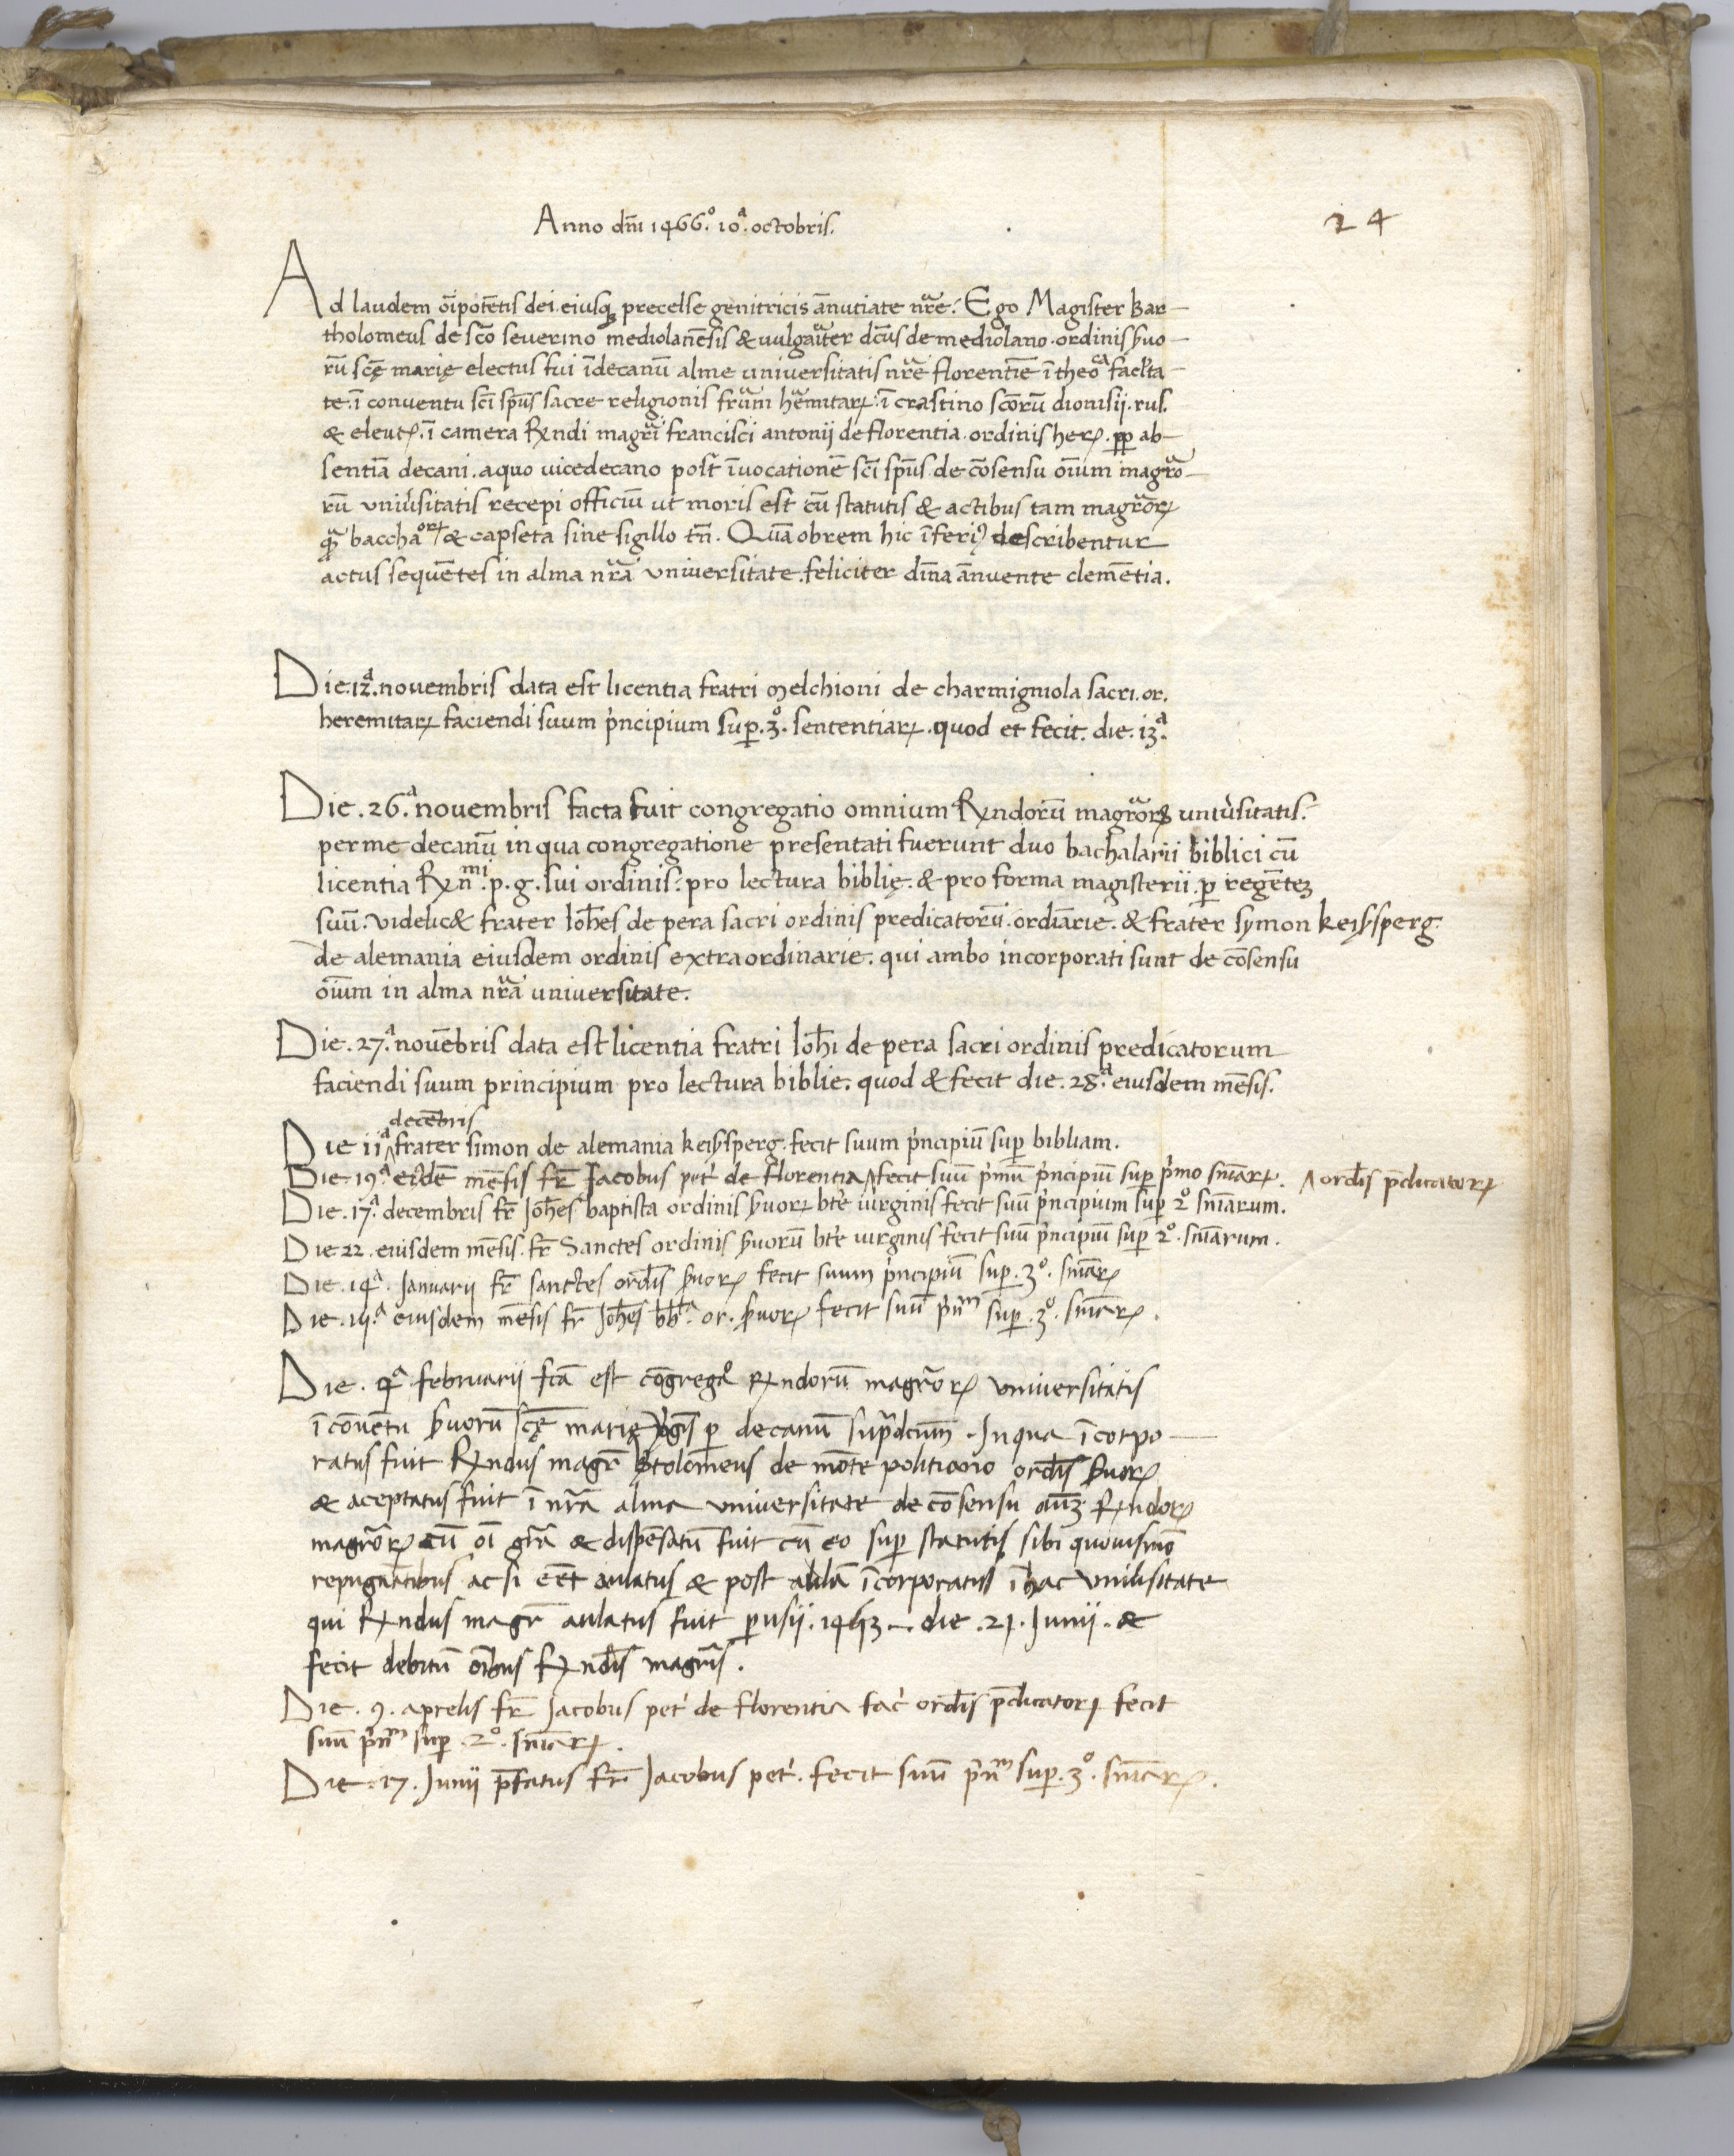 Anno dñi 1466.º 10.ª octobris.
24
Ad laudem oĩpotẽtis dei eiusqꝫ precelse genitricis ãnutiate nr̃e. Ego Magister Bar-
tholomeus de sc̃o seuerino mediolanẽsis & uulgariter dc̃us de mediolano ordinis suo-
rũ sc̃ę marię electus fui ĩ decanũ alme universitatis nr̃e florentiẽ ĩ theoᶜᵃ facl̃ta-
te. ĩ conventu sc̃i sp̃us sacre religionis frũm hẽmitaꝝ. ĩ crastino sc̃orũ dionisii. rus.
& eleutꝫ. ĩ camera Rendi magr̃i francisci antonii de florentia ordinis herꝫ. ꝓp ab-
sentiã decani. a quo vicedecano post ĩvocationẽ sc̃i sp̃us de cõsensu oĩum magr̃o-
rũ univ̓sitatis recepi officiũ ut moris est cũ statutis & actibus tam magr̃oꝝ
qꝫ̃ bacchaᵒʳꝝ & capseta sine sigillo tñ. Quã obrem hic ĩferiꝰ describentur
actus sequẽtes in alma nr̃a universitate feliciter diũa ãnuente clemẽtia.
Die. 12.ª novembris data est licentia fratri melchioni de charmigniola sacri. or.
heremitaꝝ faciendi suum p̓ncipium suꝑ. 3.º sententiaꝝ. quod et fecit. die. 13.ª
Die. 26.ª novembris facta fuit congregatio omnium Rendorũ magr̃oꝝ univ̓sitatis.
per me decanũ in qua congregatione presentati fuerunt duo bachalarii biblici cũ
licentia Renᵐⁱ. p. g. sui ordinis. pro lectura biblię. & pro forma magisterii. ꝑ regẽteꝫ
suũ. videlic& frater Ioh̃es de pera sacri ordinis predicatorũ. ordiãrie. & frater symon keisperg
de alemania eiusdem ordinis extraordinarie. qui ambo incorporati sunt de cõsensu
oĩum in alma nr̃a universitate.
Die. 27.ª novẽbris data est licentia fratri Ioh̃i de pera sacri ordinis predicatorum
faciendi suum principium pro lectura biblie. quod & fecit die. 28.ª eiusdem mẽsis.
decẽbris
Die 11ª ^ frater simon de alemania keisperg. fecit suum p̓ncipiũ suꝑ bibliam.
Die. 19.ª eidẽ mẽsis fr̃ Iacobus pet̓ de florentia ^ fecit suũ p̓mũ p̓ncipiũ suꝑ p̓mo sn̄iaꝝ. ^ ordĩs p̃dicatoꝝ
Die. 17.ª decembris fr̃ Ioh̃es baptista ordinis suoꝝ bt̃e virginis fecit suũ p̓ncipium suꝑ 2º sn̄iarum.
Die 22. eiusdem mẽsis. fr̃ Sanctes ordinis suorũ bt̃e virginis fecit suũ p̓ncipiũ suꝑ 2º. sn̄iarum.
Die. 14ª. Ianuarii fr̃ sanctes ordĩs suoꝝ fecit suum p̓ncipiũ suꝑ. 3º. sn̄iaꝝ
eiusdem mẽsis fr̃ Ioh̃es bb̃ᵗᵃ. or. suoꝝ fecit suũ p̓nᵐ suꝑ. 3º. sn̄iaꝝ.
Die. 4ª. februarii fc̃a est cõgregaº Rendorũ magr̃oꝝ universitatis
ĩ cõvẽtu suorũ sc̃ę marię ꝑ decanũ sup̃dcũm. In qua ĩcorpo-
ratus fuit Rendus magr̃ Bartolomeus de mõte politiano ordĩs suoꝝ
& aceptatus fuit ĩ nr̃a alma universitate de cõsensu oĩuꝫ Rendoꝝ
magr̃oꝝ cũ oĩ gr̃a & dispẽsatũ fuit cũ eo suꝑ statutis sibi quovismõ
repugnãtibus ac si eẽt aulatus & post aulã ĩcorporatus ĩ hac univ̓sitate
qui Rendus magr̃ aulatus fuit ꝑusii. 1463 die. 21. Iunii. &
fecit debitũ oĩbus Rendis magr̃is.
Die. 9. aprelis fr̃ Iacobus pet̓ de florentia sac̓ ordĩs p̃dicatoꝝ fecit
suũ p̓nᵐ suꝑ. 2º. sn̄iaꝝ.
Die. 17. Iunii p̃fatus fr̃ Iacobus pet̓. fecit suũ p̓nᵐ suꝑ. 3º. sn̄iaꝝ.